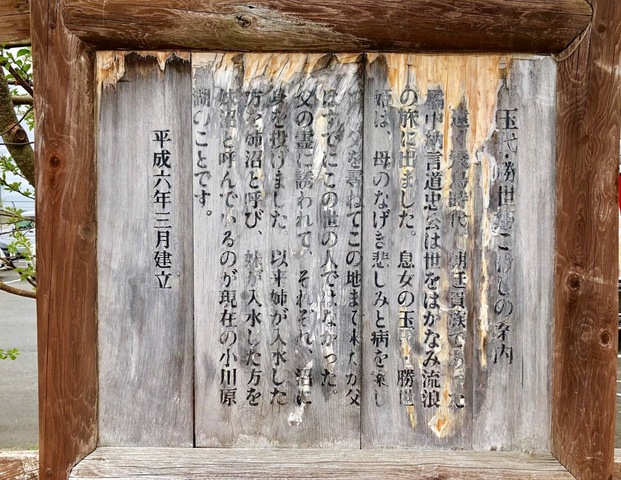 玉代・勝世姫こけしの案内
遠く飛鳥時代、 貴族であった
橘中納言道忠公は世をはかなみ流浪
の旅に出ました。息女の玉代・勝世
姫は、母のなげき悲しみと病を案じ
父を尋ねてこの地まで来たが父
はすでにこの世の人ではなかった。
父の霊に誘われて、それぞれ、沼に
身を投げました。以来姉が入水した
方を姉沼と呼び、妹が入水した方を
妹沼と呼んでいるのが現在の小川原
湖のことです。
平成六年三月建立